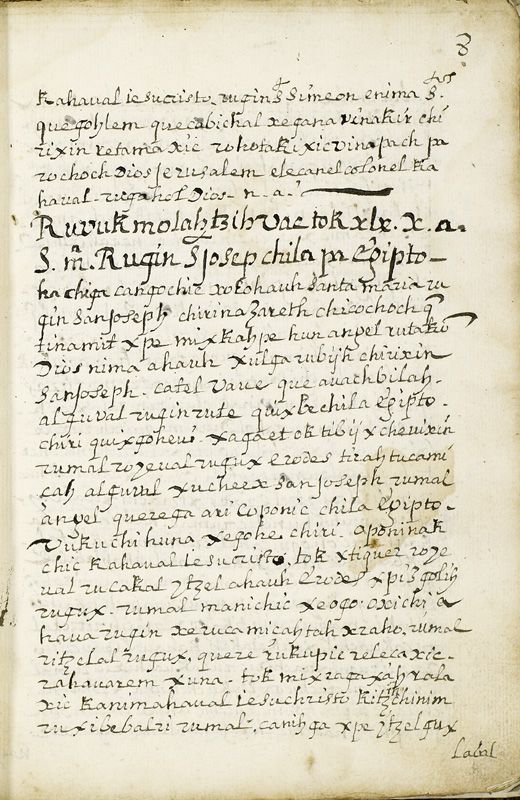 8
kahaval iesucristo rugin S. Simeon enima S.
que gohlem quecabichal xegana vinakir chi
rixin retama xic rohotaki xic vina pach pa
rochoch Dios Jerusalem elecanel colonel ka
haval. rugahol Dios. n. a.
Ruvukmolahtzih vae tok xlx. x. a.
S. m. Rugin S Josep chila pa Egipto
ha chiga cangochic xotohauh Santa maria ru
gin San Joseph chiri nazareth chicochoch
tinamit xpe mixkahpe hun angel rutakō
Dios nima ahauh xulga rubijh chirixin
San Joseph. catel vave que avachbilah.
alguval ruginrute quixbe chila Egipto.
chiri quixgoheui. xaga et ok tibijx chevixin
rumal royeval rugux Erodes tirah tucami
çah alguvul xucheex San Joseph rumal
angel querega ari coponic chila Egipto.
Vukuchi huna xegohe chiri. aponinak
chic kahaval iesucristo, tok xtiquer roye
val rucakal ytzel ahauh Erodes xpizgolih
rugux. rumal manichic xeogo. oxichi a
hava rugin xerucamiçah tah xraho, rumal
ritzelal rugux. quere rukupic releca xic.
rahavarem xuna. tok mixragaxah rala
xic kanimahaval iesuchristo kitzchinim
ruxibebalri rumal. canihga xpe ytzel gux
labal